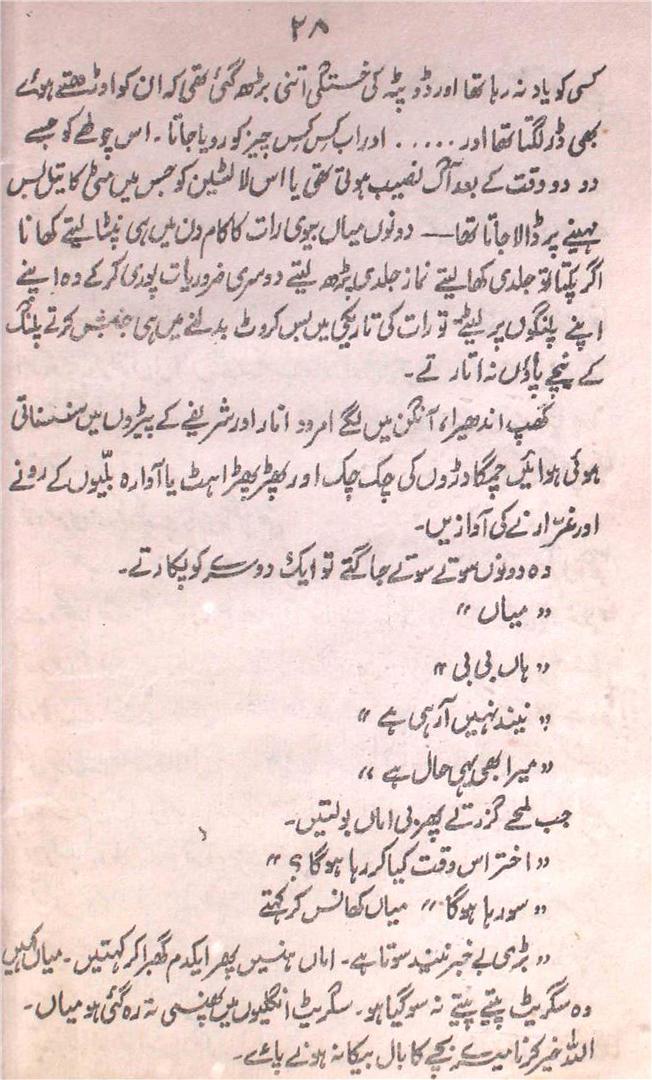 ۲۸
کسی کو یاد نہ رہا تھا اور ڈوپٹہ کی خستگی اتنی بڑھ گئی تھی کہ ان کو اوڑھتے ہوئے
بھی ڈر لگتا تھا اور ..... اور اب کس کس چیز کو رویا جاتا۔ اس چولھے کو جسے
دو دو وقت کے بعد آگ نصیب ہوتی تھی یا اس لالٹین کو جس میں مٹی کا تیل بس
مہینے پر ڈالا جاتا تھا — دونوں میاں بیوی رات کا کام دن میں ہی نپٹا لیتے کھانا
اگر پکتا تو جلدی کھا لیتے نماز جلدی پڑھ لیتے دوسری ضروریات پوری کر کے وہ اپنے
اپنے پلنگوں پر لیٹے تو رات کی تاریکی میں بس کروٹ بدلنے میں ہی جنبش کرتے پلنگ
کے نیچے پاؤں نہ اتارتے۔
گھپ اندھیرا، آنگن میں لگے امرود انار اور شریفے کے پیڑوں میں سنسناتی
ہوئی ہوائیں چمگادڑوں کی چک چک اور پھڑپھڑاہٹ یا آوارہ بلیوں کے رونے
اور غرّانے کی آوازیں۔
وہ دونوں سوتے سوتے جاگتے تو ایک دوسرے کو پکارتے۔
"میاں"
"ہاں بی بی"
"نیند نہیں آرہی ہے"
"میرا بھی یہی حال ہے"
جب لمحے گزرتے پھر بی اماں بولتیں۔
"اختر اس وقت کیا کر رہا ہوگا؟"
"سو رہا ہوگا" میاں کھانس کر کہتے
"بڑی بے خبر نیند سوتا ہے۔ اماں ہنسیں پھر ایکدم گھبرا کر کہتیں۔ میاں کہیں
وہ سگریٹ پیتے پیتے نہ سو گیا ہو۔ سگریٹ انگلیوں میں پھنسی نہ رہ گئی ہو میاں۔
اللہ خیر کرنا میرے بچے کا بال بیکا نہ ہونے پائے۔